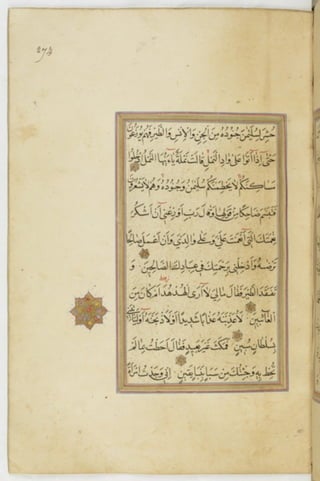 حُشِرَ لِسُلَيْمٰنَ جُنُودُهُ مِنَ الْجِنِّ وَالْاِنْسِ وَالطَّيْرِ فَهُمْ يُوزَعُونَ
حَتّٰى اِذَا اَتَوْا عَلٰى وَادِ النَّمْلِ قَالَتْ نَمْلَةٌ يَا اَيُّهَا النَّمْلُ ادْخُلُوا
مَسَاكِنَكُمْ لَا يَحْطِمَنَّكُمْ سُلَيْمٰنُ وَجُنُودُهُ وَهُمْ لَا يَشْعُرُونَ
فَتَبَسَّمَ ضَاحِكًا مِنْ قَوْلِهَا وَقَالَ رَبِّ اَوْزِعْنِي اَنْ اَشْكُرَ
نِعْمَتَكَ الَّتِي اَنْعَمْتَ عَلَيَّ وَعَلٰى وَالِدَيَّ وَاَنْ اَعْمَلَ صَالِحًا
تَرْضٰيهُ وَاَدْخِلْنِي بِرَحْمَتِكَ فِي عِبَادِكَ الصَّالِحِينَ وَ
تَفَقَّدَ الطَّيْرَ فَقَالَ مَا لِيَ لَا اَرَى الْهُدْهُدَ اَمْ كَانَ مِنَ
الْغَائِبِينَ لَاُعَذِّبَنَّهُ عَذَابًا شَدِيدًا اَوْ لَاَذْبَحَنَّهُ اَوْ لَيَأْتِيَنِّي
بِسُلْطَانٍ مُبِينٍ فَمَكَثَ غَيْرَ بَعِيدٍ فَقَالَ اَحَطْتُ بِمَا لَمْ
تُحِطْ بِهِ وَجِئْتُكَ مِنْ سَبَاٍ بِنَبَاٍ يَقِينٍ اِنِّي وَجَدْتُ امْرَاَةً